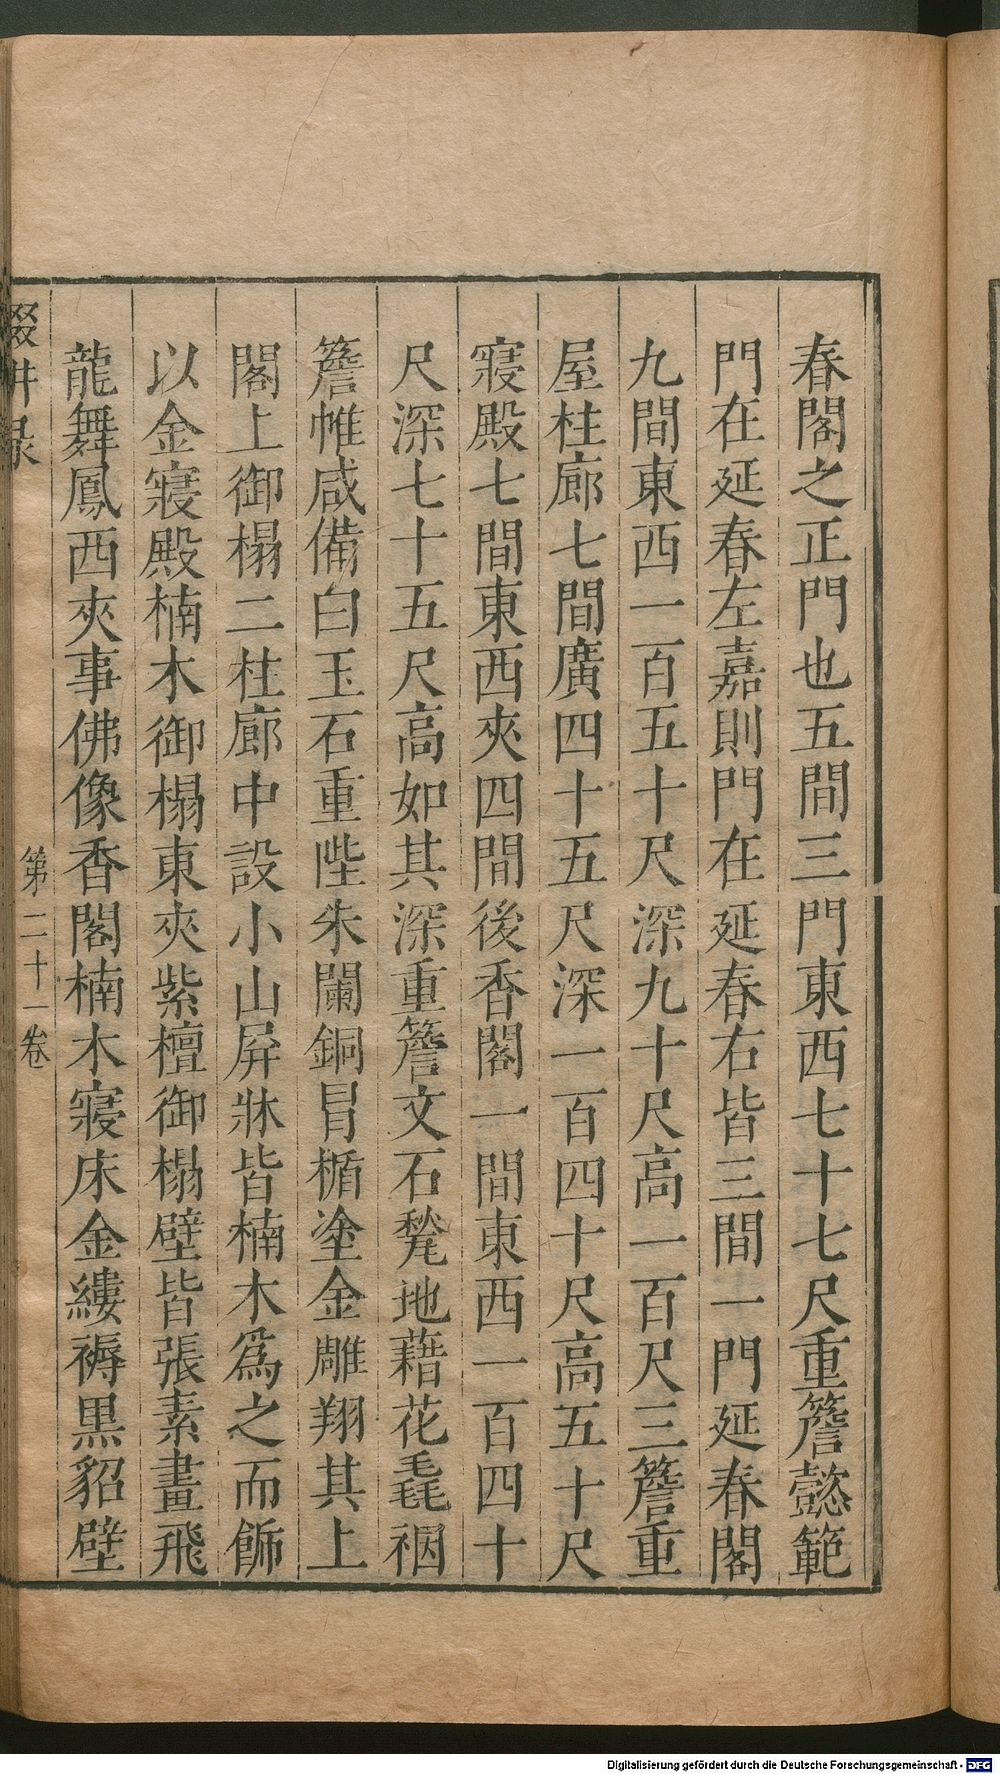 春閣之正門也五間三門東西七十七尺重簷懿範
門在延春左嘉則門在延春右皆三間一門延春閣
九間東西一百五十尺深九十尺高一百尺三簷重
屋柱廊七間廣四十五尺深一百四十尺高五十尺
寢殿七間東西夾四間後香閣一間東西一百四十
尺深七十五尺高如其深重簷文石甃地藉花毳裀
簷帷咸備白玉石重陛朱闌銅冐楯塗金雕翔其上
閣上御榻二柱廊中設小山屏牀皆楠木爲之而飾
以金寢殿楠木御榻東夾紫檀御榻壁皆張素畫飛
龍舞鳳西夾事佛像香閣楠木寢床金縷褥黒貂壁
輟耕录
第二十一卷
Digitalisierung gefördert durch die Deutsche Forschungsgemeinschaft - DFG